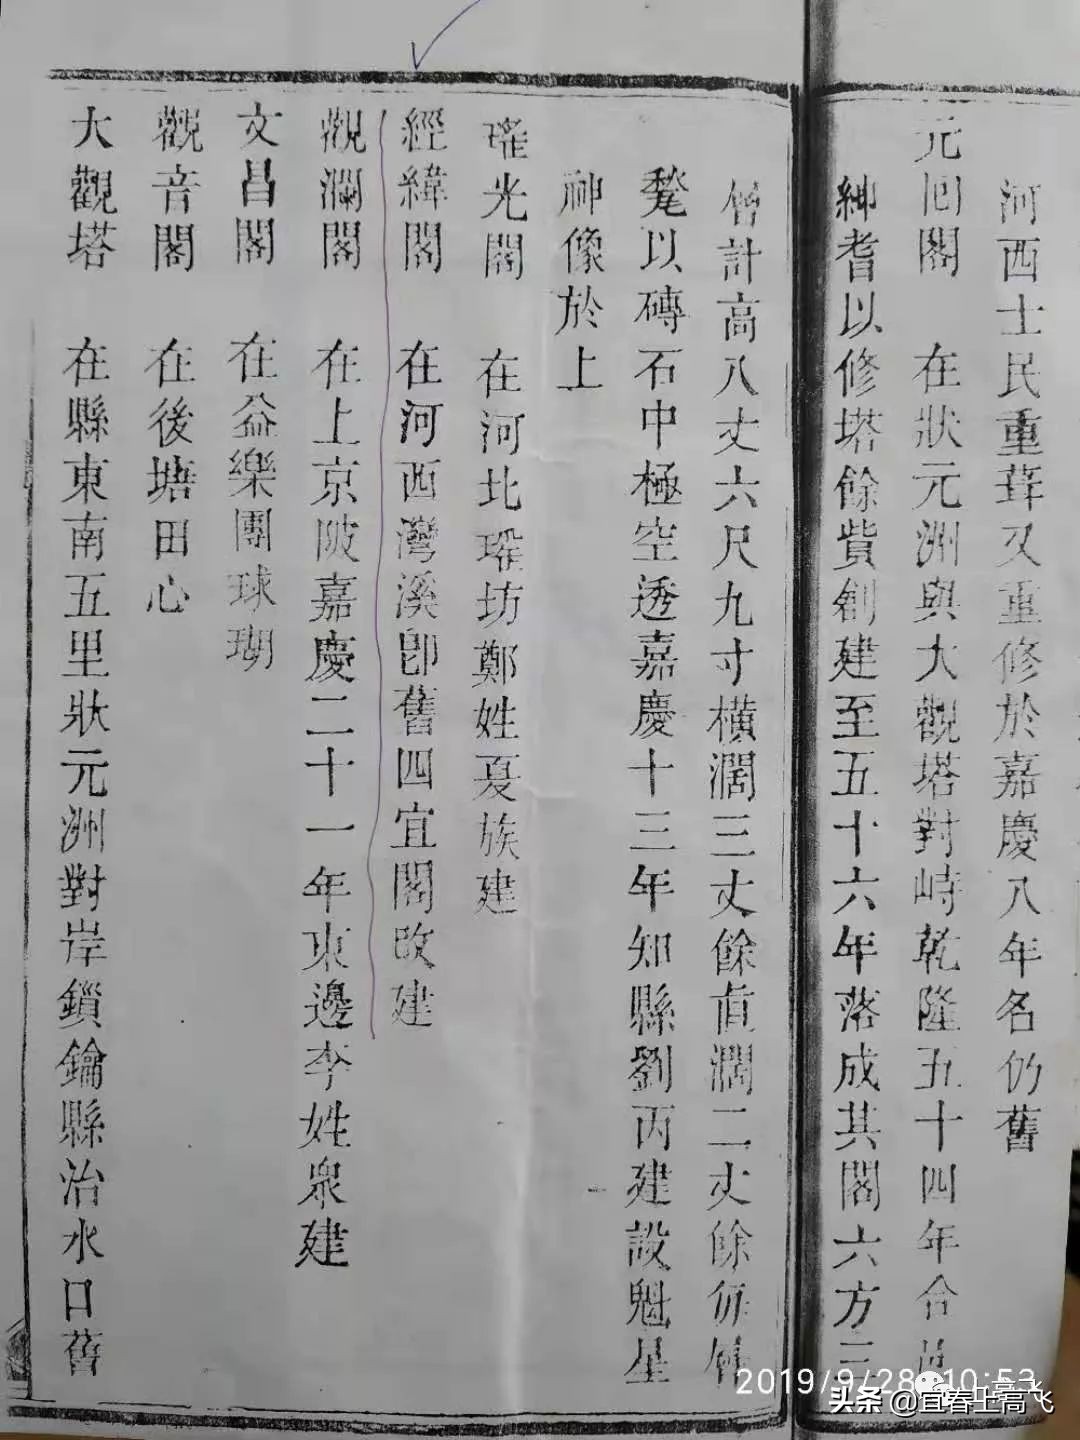 河西士民重葺又重修於嘉慶八年名仍舊
元回閣 在狀元洲與大觀塔對峙乾隆五十四年合邑
紳耆以修塔餘貲創建至五十六年落成其閣六方三
層計高八丈六尺九寸橫濶三丈餘直濶二丈餘
甃以磚石中極空透嘉慶十三年知縣劉丙建設魁星
神像於上
瑤光閣 在河北瑤坊鄭姓夏族建
經緯閣 在河西灣溪卽舊四宜閣改建
觀瀾閣 在上京陂嘉慶二十一年東邊李姓衆建
文昌閣 在益樂團球瑚
觀音閣 在後塘田心
大觀塔 在縣東南五里狀元洲對岸鎖鑰縣治水口舊
2019/9/28 10:53
头条@宜春上高飞